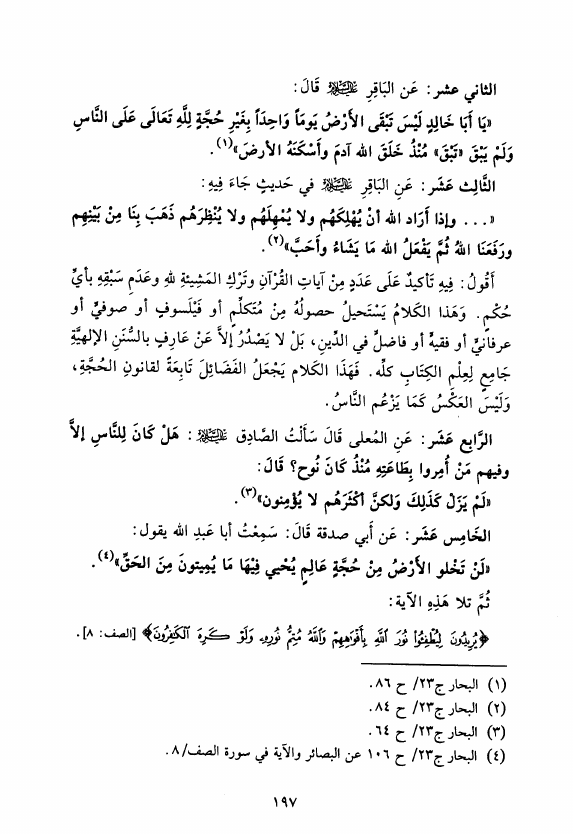 الثاني عشر: عَن البَاقِرِ عليه السلام قَالَ:
«يَا أَبَا خَالِدٍ لَيْسَ تَبْقَى الأَرْضُ يَوماً وَاحِدَاً بِغَيْرِ حُجَّةٍ لِلَّهِ تَعَالَى عَلَى النَّاسِ
وَلَمْ يَبْقَ «تَبْقَ» مُنْذُ خَلَقَ الله آدمَ وأَسْكَنَهُ الأرضَ»(١).
الثَّالِث عَشَر: عَنِ البَاقِرِ عليه السلام في حَديثٍ جَاءَ فِيهِ:
«... وإذا أَرَادَ الله أنْ يُهْلِكَهُم ولا يُمْهِلَهُم ولا يُنْظِرَهُم ذَهَبَ بِنَا مِنْ بَيْنِهِم
ورَفَعَنَا اللهُ ثُمَّ يَفْعَلُ الله مَا يَشَاءُ وأَحَبَّ»(٢).
أَقُولُ: فِيهِ تأكيدٌ عَلَى عَدَدٍ مِنْ آياتِ القُرْآنِ وتَرْكِ المَشِيئَةِ للهِ وعَدَمِ سَبْقِهِ بِأيِّ
حُكْمٍ. وَهَذا الكَلامُ يَسْتَحيلُ حصولُهُ مِنْ مُتَكلِّمٍ أو فَيْلَسوفٍ أو صوفيٍّ أو
عرفانيٍّ أو فقيهٍ أو فاضلٍ في الدِّينِ، بَلْ لا يَصْدُرُ إلاَّ عَنْ عَارِفٍ بالسُّنَنِ الإلهيَّةِ
جَامِعٍ لِعِلْمِ الكِتَابِ كلِّه. فَهَذَا الكَلام يَجْعَلُ الفَضَائِلَ تَابِعَةً لقانونِ الحُجَّةِ،
وَلَيْسَ العَكْسُ كَمَا يَزْعُم النَّاسُ.
الرَّابِع عَشَر: عَنِ المُعلى قَالَ سَأَلْتُ الصَّادِق عليه السلام: هَلْ كَانَ لِلنَّاسِ إلاَّ
وفيهم مَنْ أُمِروا بِطَاعَتِهِ مُنْذُ كَانَ نُوح؟ قَالَ:
«لَمْ يَزَلْ كَذَلِكَ وَلكنَّ أَكْثَرَهُم لا يُؤْمِنون»(٣).
الخَامِس عَشَر: عَن أَبي صدقة قَالَ: سَمِعْتُ أبا عَبدِ الله يقول:
«لَنْ تَخْلو الأَرْضُ مِنْ حُجَّةٍ عَالِمٍ يُحْيي فِيْهَا مَا يُمِيتونَ مِنَ الحَقِّ»(٤).
ثُمَّ تلا هَذِهِ الآية:
﴿يُرِيدُونَ لِيُطْفِئُوا نُورَ اللَّهِ بِأَفْوَاهِهِمْ وَاللَّهُ مُتِمُّ نُورِهِ وَلَوْ كَرِهَ الْكَافِرُونَ﴾ [الصف: ٨].
(١) البحار ج٢٣/ ح ٨٦.
(٢) البحار ج٢٣/ ح ٨٤.
(٣) البحار ج٢٣/ ح ٦٤.
(٤) البحار ج٢٣/ ح ١٠٦ عن البصائر والآية في سورة الصف/ ٨.
١٩٧